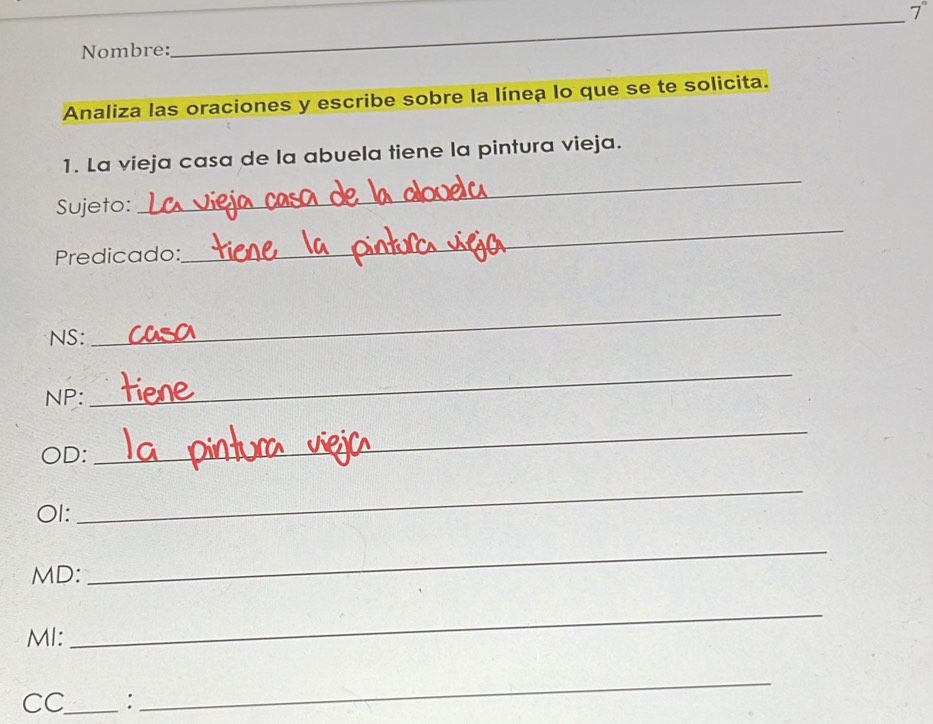 7°
Nombre:
Analiza las oraciones y escribe sobre la línea lo que se te solicita.
1. La vieja casa de la abuela tiene la pintura vieja.
Sujeto: La vieja casa de la abuela
Predicado: tiene la pintura vieja
NS: casa
NP: tiene
OD: la pintura vieja
OI:
MD:
MI:
CC____ :